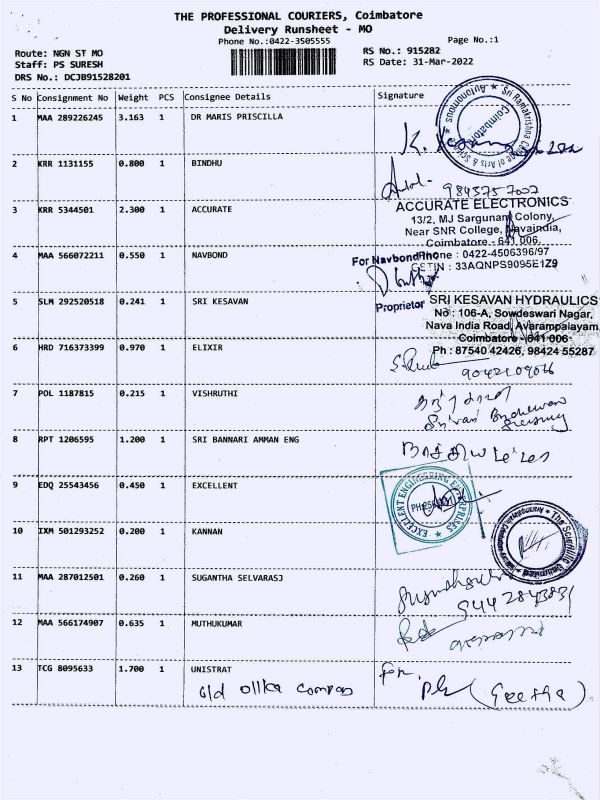 THE PROFESSIONAL COURIERS, Coimbatore
Delivery Runsheet - MO
Phone No.:0422-3505555
Page No.:1
Route: NGN ST MO
RS No.: 915282
Staff: PS SURESH
RS Date: 31-Mar-2022
DRS No.: DCJB91528201
S No Consignment No Weight PCS Consignee Details Signature
1 MAA 289226245 3.163 1 DR MARIS PRISCILLA
Sri Ramakrishna College of Arts & Science * Autonomous *
Coimbatore
2 KRR 1131155 0.800 1 BINDHU
9843757002
3 KRR 5344501 2.300 1 ACCURATE
ACCURATE ELECTRONICS
13/2, MJ Sargunam Colony,
Near SNR College, Navaindia,
Coimbatore - 641 006.
Phone : 0422-4506396/97
GSTIN : 33AQNPS9095E1Z9
4 MAA 566072211 0.550 1 NAVBOND
For Navbond Inc
Proprietor
5 SLM 292520518 0.241 1 SRI KESAVAN
SRI KESAVAN HYDRAULICS
No : 106-A, Sowdeswari Nagar,
Nava India Road, Avarampalayam
Coimbatore - 641 006
Ph : 87540 42426, 98424 55287
6 HRD 716373399 0.970 1 ELIXIR
7 POL 1187815 0.215 1 VISHRUTHI
8 RPT 1206595 1.200 1 SRI BANNARI AMMAN ENG
9 EDQ 25543456 0.450 1 EXCELLENT
EXCELLENT ENGINEERING ENTERPRISES
10 IXM 501293252 0.200 1 KANNAN
11 MAA 287012501 0.260 1 SUGANTHA SELVARASJ
944 2843831
12 MAA 566174907 0.635 1 MUTHUKUMAR
13 TCG 8095633 1.700 1 UNISTRAT
for
(Geetha)
old